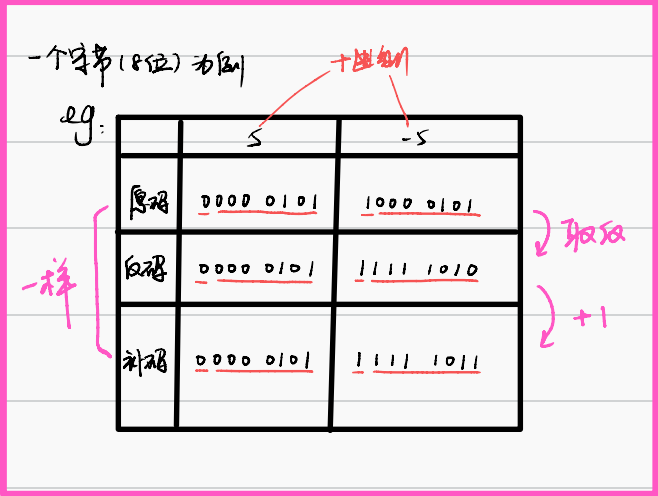 一个字节(8位)为例
十进制
eg:
5 -5
原码 0000 0101 1000 0101
取反
反码 0000 0101 1111 1010
一样
+1
补码 0000 0101 1111 1011